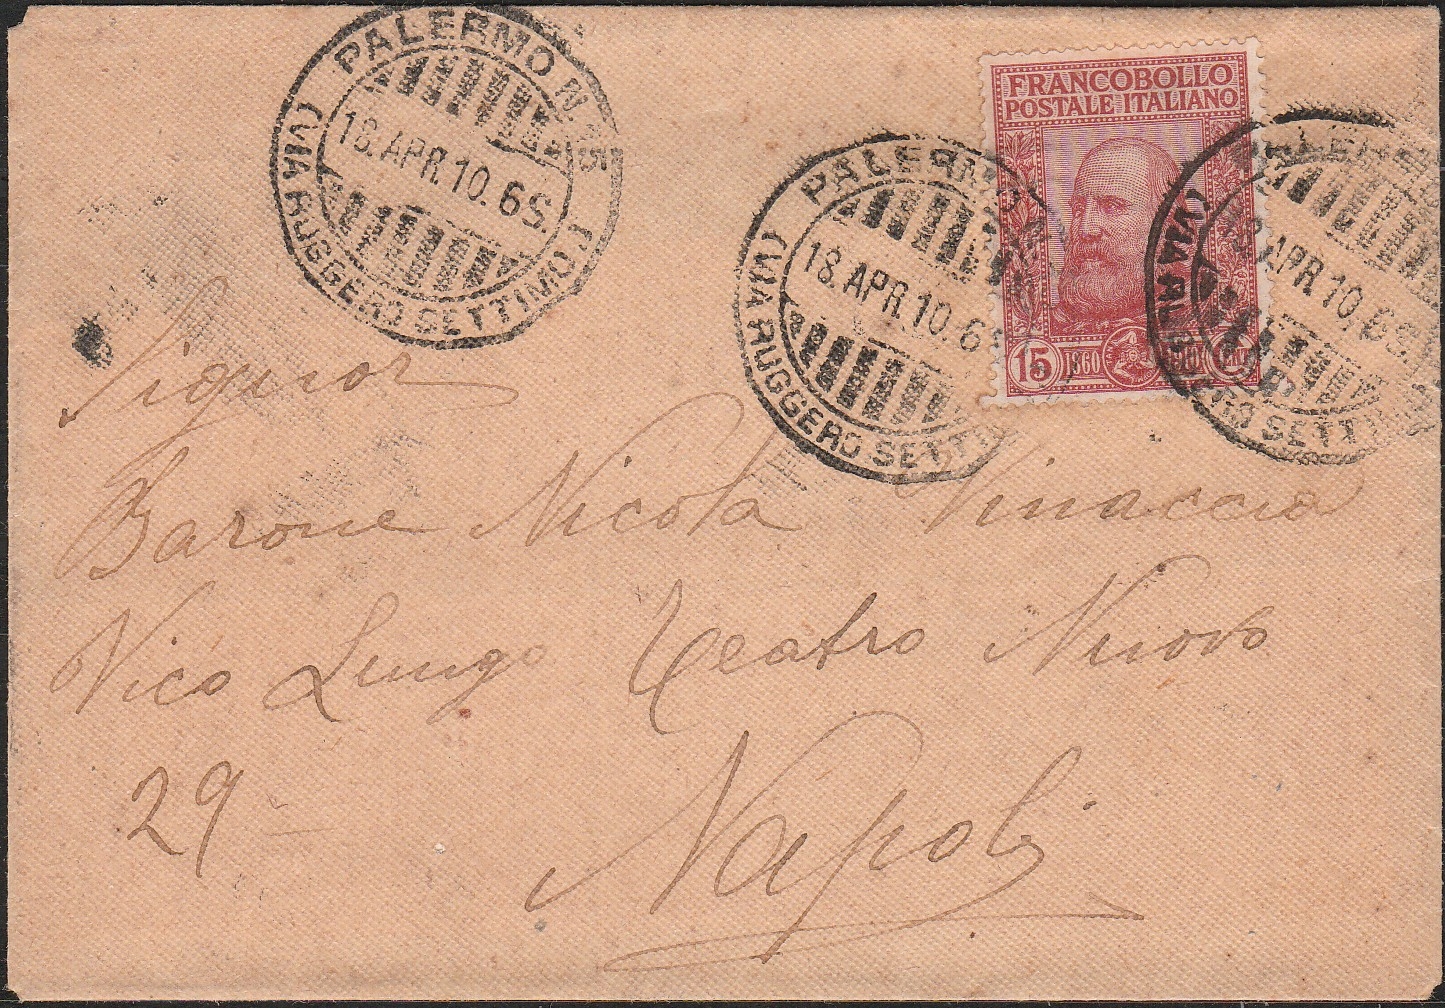 PALERMO N. 15
18.APR.10. 6S.
(VIA RUGGERO SETTIMO)
PALERMO N.
18.APR.10. 6S
(VIA RUGGERO SETTI
FRANCOBOLLO
POSTALE ITALIANO
15 1860 1910 CENT
PALER
18 APR.10. 6S.
(VIA RUGGERO SETT
Signor
Barone Nicola Vinaccia
Vico Lungo Teatro Nuovo
29
Napoli